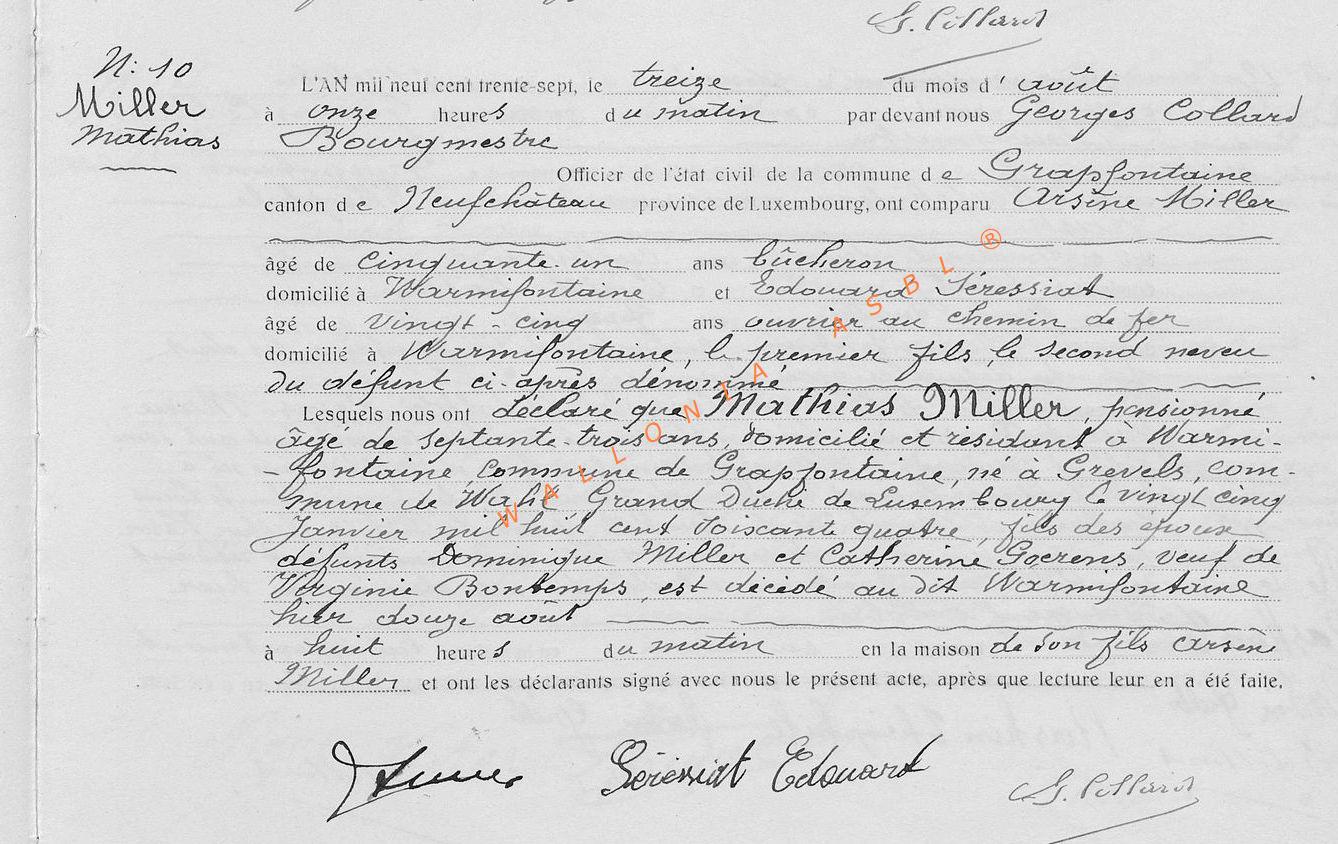 G. Collard
N: 10
Miller
Mathias
L'AN mil neuf cent trente-sept, le treize du mois d' août
à onze heures du matin par devant nous Georges Collard
Bourgmestre
Officier de l'état civil de la commune de Grapfontaine
canton de Neufchâteau province de Luxembourg, ont comparu Arsène Miller
âgé de cinquante-un ans bûcheron
domicilié à Warmifontaine et Edouard Séressiat
âgé de vingt-cinq ans ouvrier au chemin de fer
domicilié à Warmifontaine, le premier fils, le second neveu
du défunt ci-après dénommé
Lesquels nous ont déclaré que Mathias Miller, pensionné
âgé de septante-trois ans, domicilié et résidant à Warmi-
-fontaine, commune de Grapfontaine, né à Grevels, com-
mune de Wahl Grand Duché de Luxembourg le vingt cinq
Janvier mil huit cent soixante quatre, fils des époux
défunts Dominique Miller et Catherine Goerens, veuf de
Virginie Bontemps, est décédé au dit Warmifontaine
hier douze août
à huit heures du matin en la maison de son fils Arsène
Miller et ont les déclarants signé avec nous le présent acte, après que lecture leur en a été faite.
Séressiat Edouard
G. Collard
WALLONIA ASBL ®